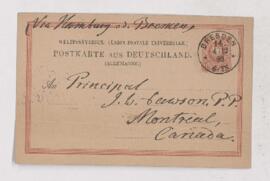 Via Hamburg o. Bremen,
WELTPOSTVEREIN. (UNION POSTALE UNIVERSELLE.)
POSTKARTE AUS DEUTSCHLAND.
(ALLEMAGNE.)
DRESDEN
14
To Principal
J. W. Dawson, P.P.
Montreal,
Canada.